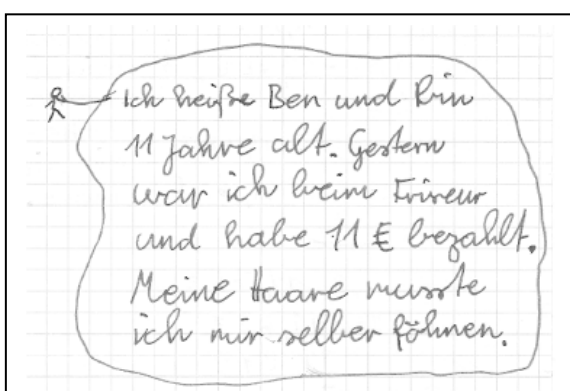 Ich heiße Ben und bin
11 Jahre alt. Gestern
war ich beim Friseur
und habe 11 € bezahlt.
Meine Haare musste
ich mir selber föhnen.